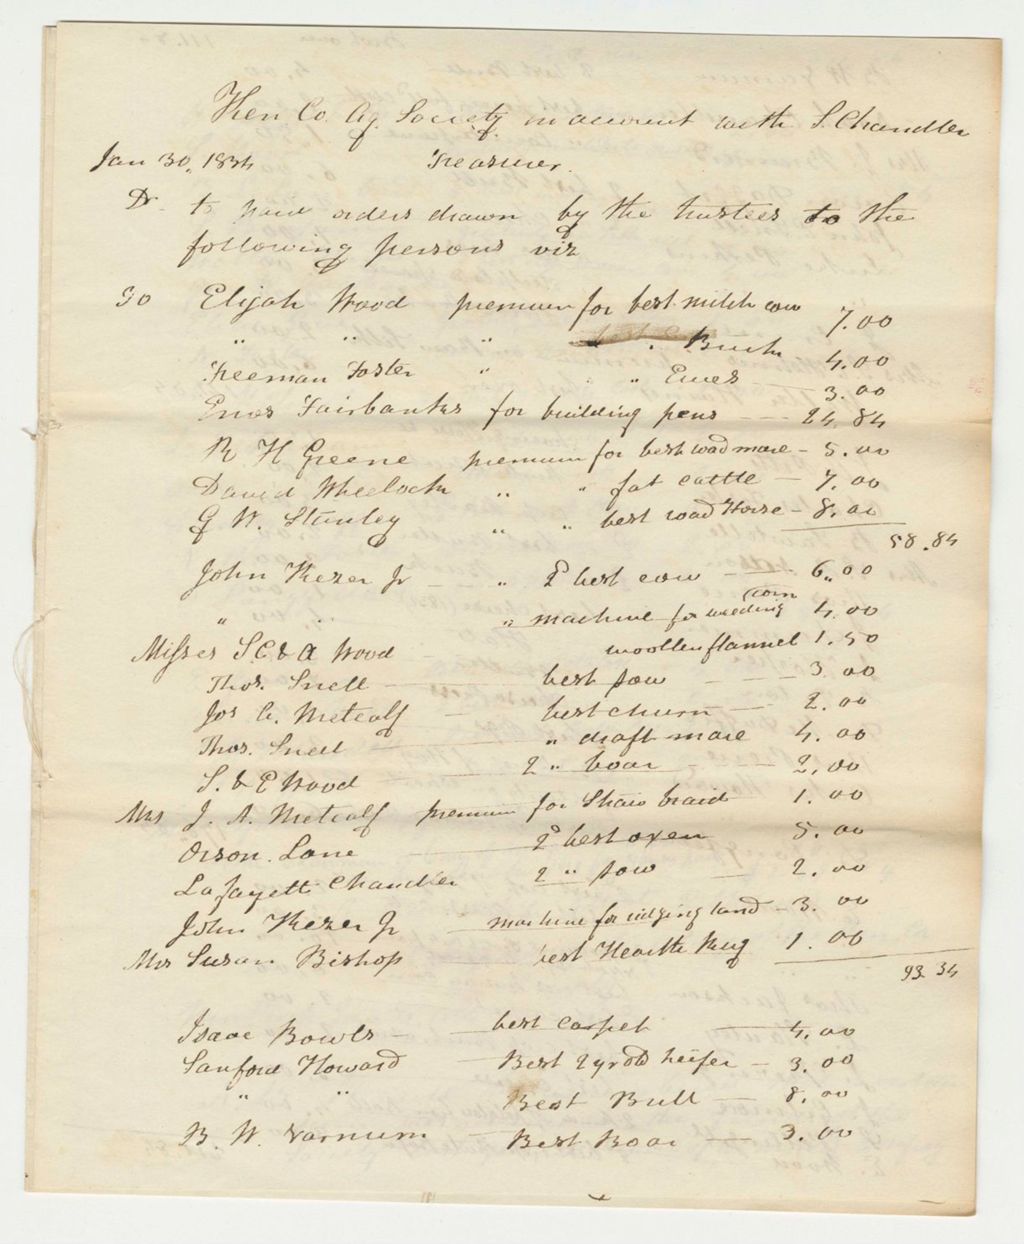 Ken Co. Ag. Society in account with S. Chandler
Jan 30, 1834 Treasurer.
Dr. to paid orders drawn by the trustees to the
following persons viz
To Elijah Wood premium for best milch cow 7.00
" " " " Buck 4.00
Freeman Foster " " " Ewes 3.00
Enos Fairbanks for building pens 24.84
R H Greene premium for best road mare 5.00
David Wheelock " " fat cattle 7.00
G W. Stanley " " best road Horse 8.00
58.84
John Kezer Jr " 2d best cow 6.00
" " " machine for weeding corn 4.00
Misses S. C. & A Wood woollen flannel 1.50
Thos. Snell best sow 3.00
Jos A. Metcalf best churn 2.00
Thos. Snell " draft mare 4.00
S. & E Wood 2 " boar 2.00
Mrs J. A. Metcalf premium for Straw braid 1.00
Orson Lane 2d best oxen 5.00
Lafayette Chandler 2 " sow 2.00
John Kezer Jr machine for ridging land 3.00
Mrs Susan Bishop best Hearth Rug 1.00
93.34
Isaac Bowls best Carpet 4.00
Sanford Howard Best 2 yr old heifer 3.00
" " Best Bull 8.00
B. W. Varnum Best Boar 3.00